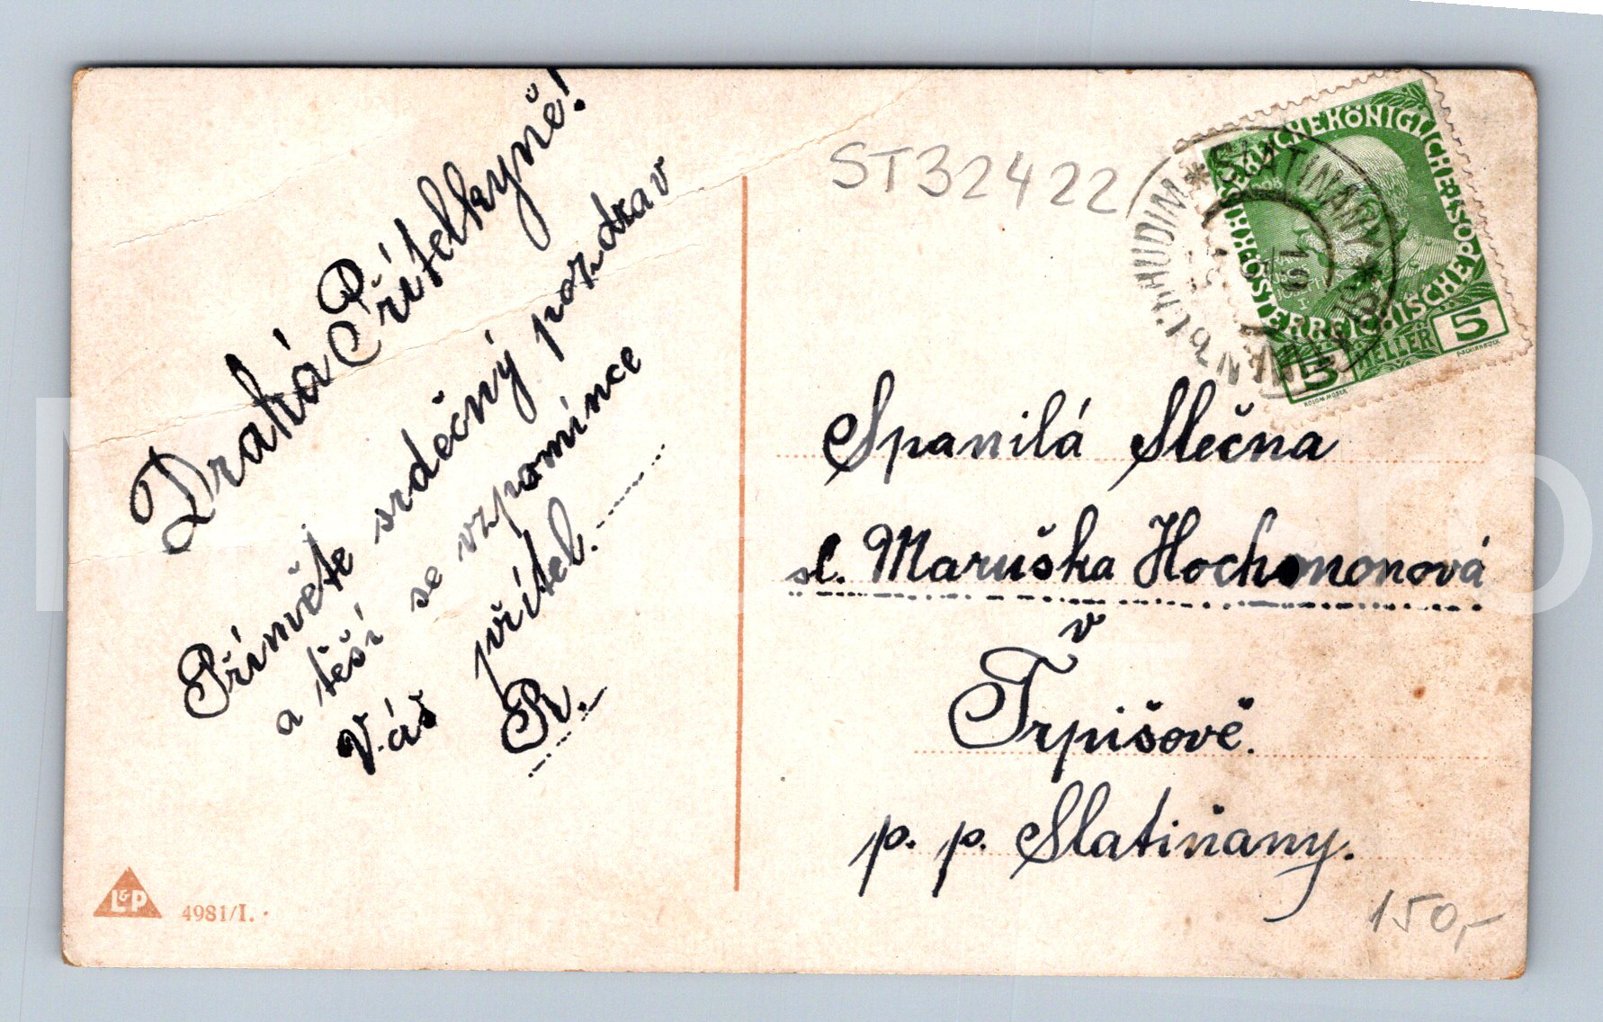 Drahá Přítelkyně!
Přímněte srdečný pozdrav
a těší se vzpomínce
Váš přítel.
R.
L&P
4981/I.
ST32422
SLATINANY
CHRUDIM
KAISERLICHE KÖNIGLICHE ÖSTERREICHISCHE POST
5 HELLER 5
Spanilá Slečna
sl. Maruška Hochmonová
v
Trpišově.
p. p. Slatiňany.
150,-